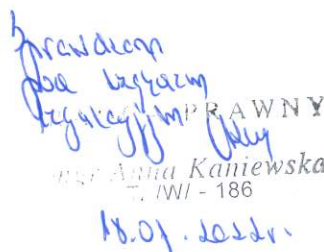 Sprawdzono
pod względem
legislacyjnym
PRAWNY
Anna Kaniewska
/W/ - 186
18.01.2022r.